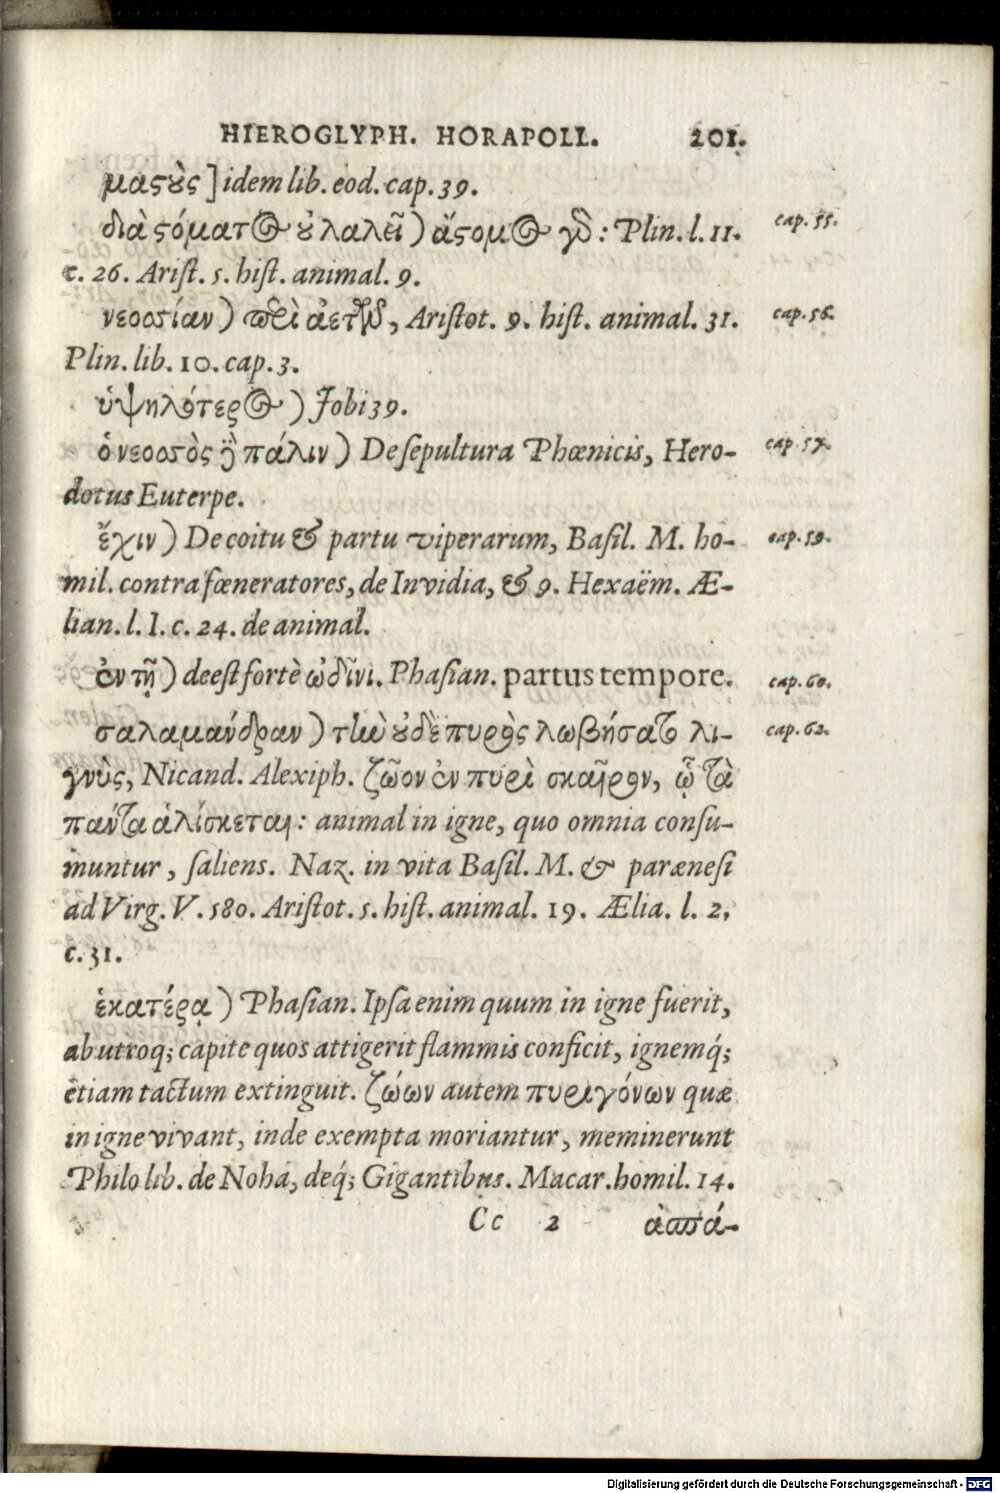 HIEROGLYPH. HORAPOLL. 201.
μαςȣ̀ς] idem lib. eod. cap. 39.
διὰ ςόματος ȣ̓ λαλεῖ) ἄςομος γὸ: Plin. l. 11. cap. 55.
c. 26. Arist. 5. hist. animal. 9.
νεοσσίαν) περὶ ἀετῶν, Aristot. 9. hist. animal. 31. cap. 56.
Plin. lib. 10. cap. 3.
ὑψηλότερος) Jobi 39.
ὁ νεοσσὸς ὢ πάλιν) De sepultura Phœnicis, Hero- cap. 57.
dotus Euterpe.
ἔχιν) De coitu & partu viperarum, Basil. M. ho- cap. 59.
mil. contra fœneratores, de Invidia, & 9. Hexaëm. Æ-
lian. l. 1. c. 24. de animal.
ἐν τῇ) deest fortè ὠδῖνι. Phasian. partus tempore. cap. 60.
σαλαμάνδραν) τὴν ȣ̓δὲ πυρὸς λωβήσατο λι- cap. 62.
γνὺς, Nicand. Alexiph. ζῶον ἐν πυρὶ σκαῖρον, ᾧ τὰ
πάντα ἁλίσκεται: animal in igne, quo omnia consu-
muntur, saliens. Naz. in vita Basil. M. & parænesi
ad Virg. V. 580. Aristot. 5. hist. animal. 19. Ælia. l. 2,
c. 31.
ἑκατέρᾳ) Phasian. Ipsa enim quum in igne fuerit,
ab utroq; capite quos attigerit flammis conficit, ignemq́;
etiam tactum extinguit. ζώων autem πυριγόνων quæ
in igne vivant, inde exempta moriantur, meminerunt
Philo lib. de Noha, deq́; Gigantibus. Macar. homil. 14.
Cc 2 ἀσπά-
Digitalisierung gefördert durch die Deutsche Forschungsgemeinschaft - DFG